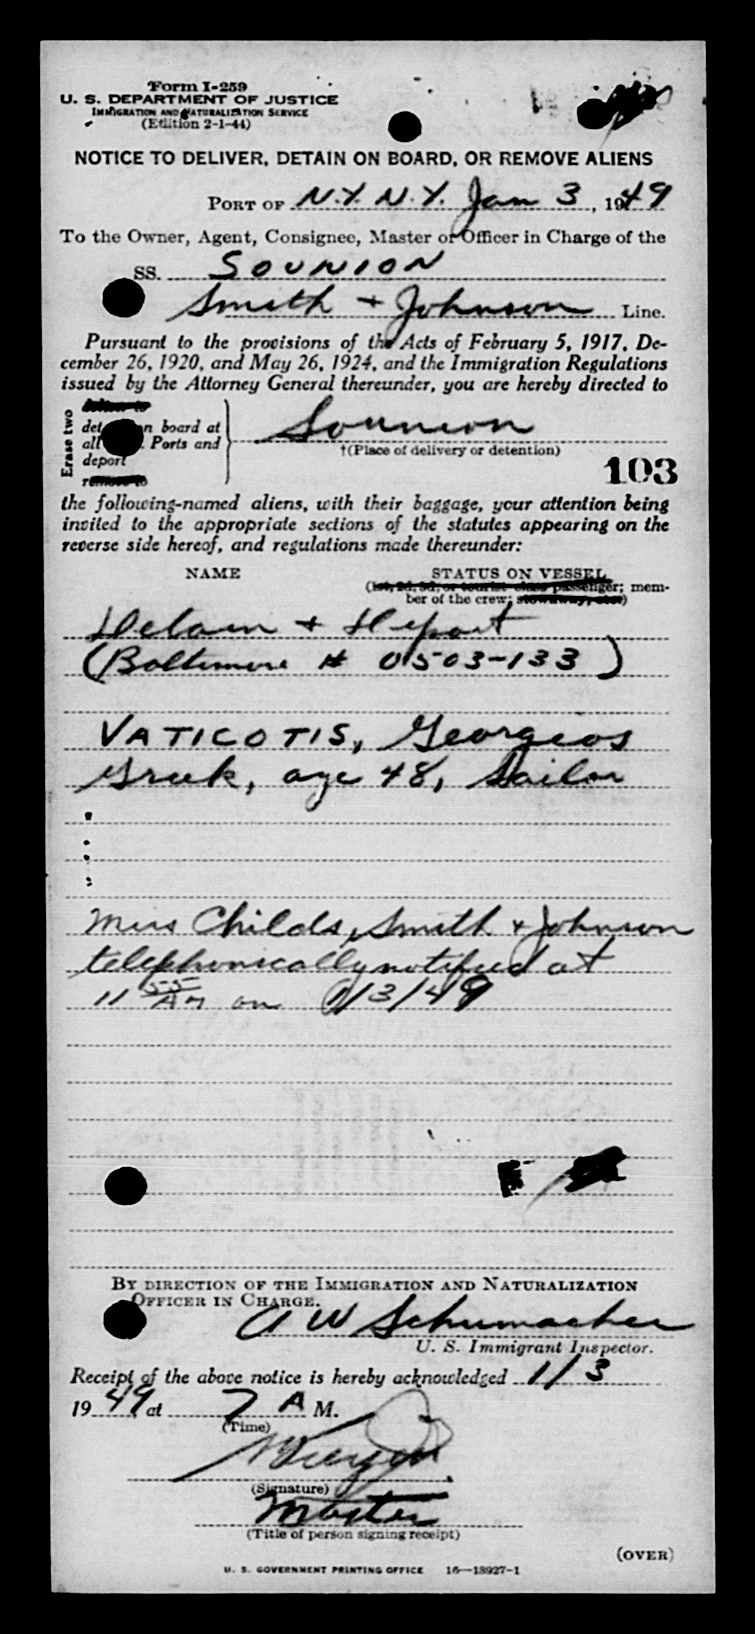 Form I-259
U. S. DEPARTMENT OF JUSTICE
IMMIGRATION AND NATURALIZATION SERVICE
(Edition 2-1-44)
NOTICE TO DELIVER, DETAIN ON BOARD, OR REMOVE ALIENS
PORT OF N.Y. N.Y. Jan 3, 1949
To the Owner, Agent, Consignee, Master or Officer in Charge of the
SS. SOUNION
Smith + Johnson Line.
Pursuant to the provisions of the Acts of February 5, 1917, De-
cember 26, 1920, and May 26, 1924, and the Immigration Regulations
issued by the Attorney General thereunder, you are hereby directed to
Erase two
deliver to
detain on board at
all Ports and
deport
remove to
Sounion
†(Place of delivery or detention)
103
the following-named aliens, with their baggage, your attention being
invited to the appropriate sections of the statutes appearing on the
reverse side hereof, and regulations made thereunder:
NAME STATUS ON VESSEL
(1st, 2d, 3d, or tourist class passenger; mem-
ber of the crew; stowaway, etc.)
Detain + Deport
(Baltimore # 0503-133)
VATICOTIS, Georgios
Greek, age 48, Sailor
Miss Childs, Smith + Johnson
telephonically notified at
11 55 AM on 1/3/49
BY DIRECTION OF THE IMMIGRATION AND NATURALIZATION
OFFICER IN CHARGE.
A W Schumacher
U. S. Immigrant Inspector.
Receipt of the above notice is hereby acknowledged 1/3
1949 at 7 A M.
(Time)
(Signature)
Master
(Title of person signing receipt)
(OVER)
U. S. GOVERNMENT PRINTING OFFICE 16—13927-1